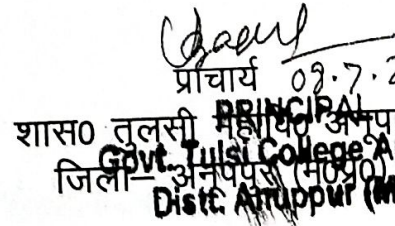 प्राचार्य 08.7.2
PRINCIPAL
शास0 तुलसी महावि0 अनूप
Govt. Tulsi College A
जिला– अनूपपुर (म0प्र0)
Distt. Anuppur (M